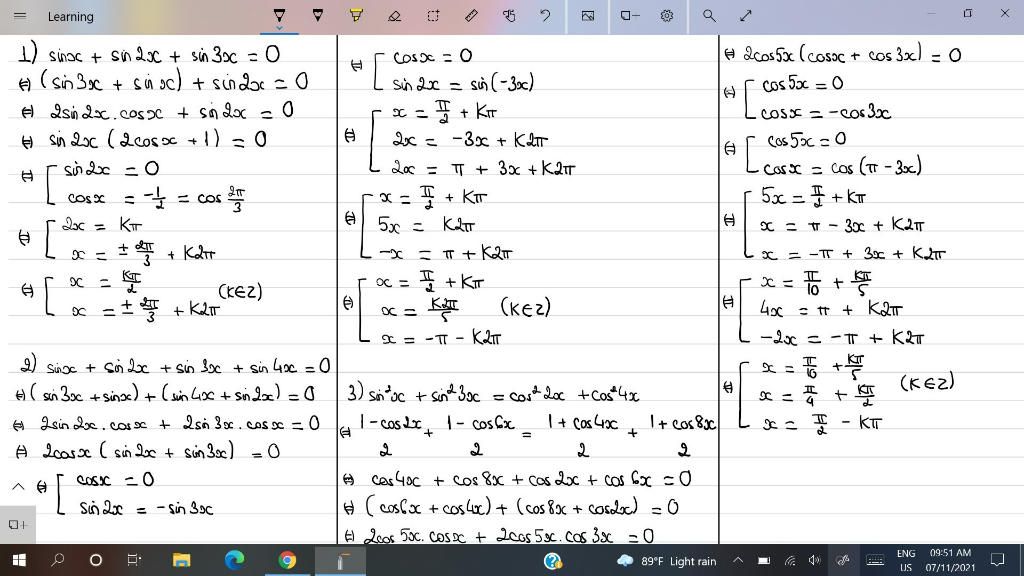 Learning
1) sinx + sin2x + sin3x = 0
⇔ (sin3x + sinx) + sin2x = 0
⇔ 2sin2x.cosx + sin2x = 0
⇔ sin2x (2cosx + 1) = 0
⇔ [ sin2x = 0
cosx = -1/2 = cos 2π/3
⇔ [ 2x = Kπ
x = ± 2π/3 + K2π
⇔ [ x = Kπ/2
x = ± 2π/3 + K2π (K∈Z)
2) sinx + sin2x + sin3x + sin4x = 0
⇔ (sin3x + sinx) + (sin4x + sin2x) = 0
⇔ 2sin2x.cosx + 2sin3x.cosx = 0
⇔ 2cosx (sin2x + sin3x) = 0
⇔ [ cosx = 0
sin2x = -sin3x
⇔ [ cosx = 0
sin2x = sin(-3x)
⇔ [ x = π/2 + Kπ
2x = -3x + K2π
2x = π + 3x + K2π
⇔ [ x = π/2 + Kπ
5x = K2π
-x = π + K2π
⇔ [ x = π/2 + Kπ
x = K2π/5 (K∈Z)
x = -π - K2π
3) sin²x + sin²3x = cos²2x + cos²4x
⇔ 1-cos2x/2 + 1-cos6x/2 = 1+cos4x/2 + 1+cos8x/2
⇔ cos4x + cos8x + cos2x + cos6x = 0
⇔ (cos6x + cos4x) + (cos8x + cos2x) = 0
⇔ 2cos5x.cosx + 2cos5x.cos3x = 0
⇔ 2cos5x (cosx + cos3x) = 0
⇔ [ cos5x = 0
cosx = -cos3x
⇔ [ cos5x = 0
cosx = cos(π-3x)
⇔ [ 5x = π/2 + Kπ
x = π - 3x + K2π
x = -π + 3x + K2π
⇔ [ x = π/10 + Kπ/5
4x = π + K2π
-2x = -π + K2π
⇔ [ x = π/10 + Kπ/5
x = π/4 + Kπ/2 (K∈Z)
x = π/2 - Kπ
89°F Light rain
ENG
US
09:51 AM
07/11/2021